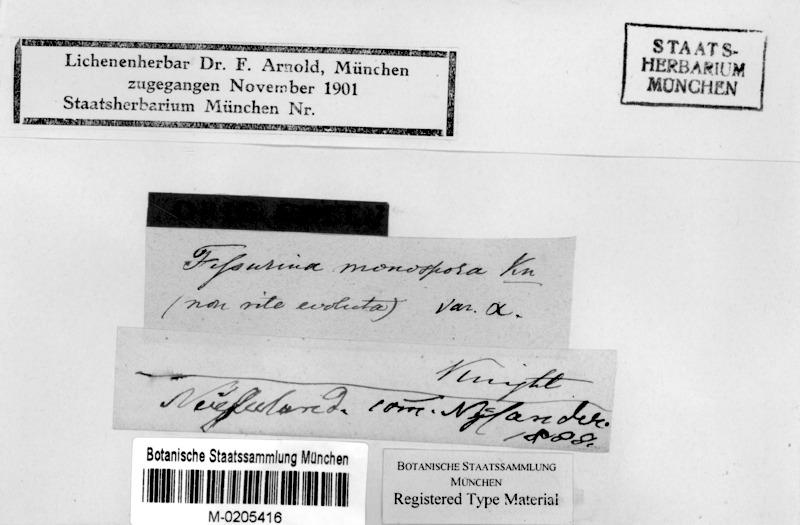 Lichenenherbar Dr. F. Arnold, München
zugegangen November 1901
Staatsherbarium München Nr.
STAATS-
HERBARIUM
MÜNCHEN
Fissurina monospora Kn
(non rite evoluta) var. α.
Knight
com. Nylander.
1888.
Botanische Staatssammlung München
M-0205416
BOTANISCHE STAATSSAMMLUNG
MÜNCHEN
Registered Type Material